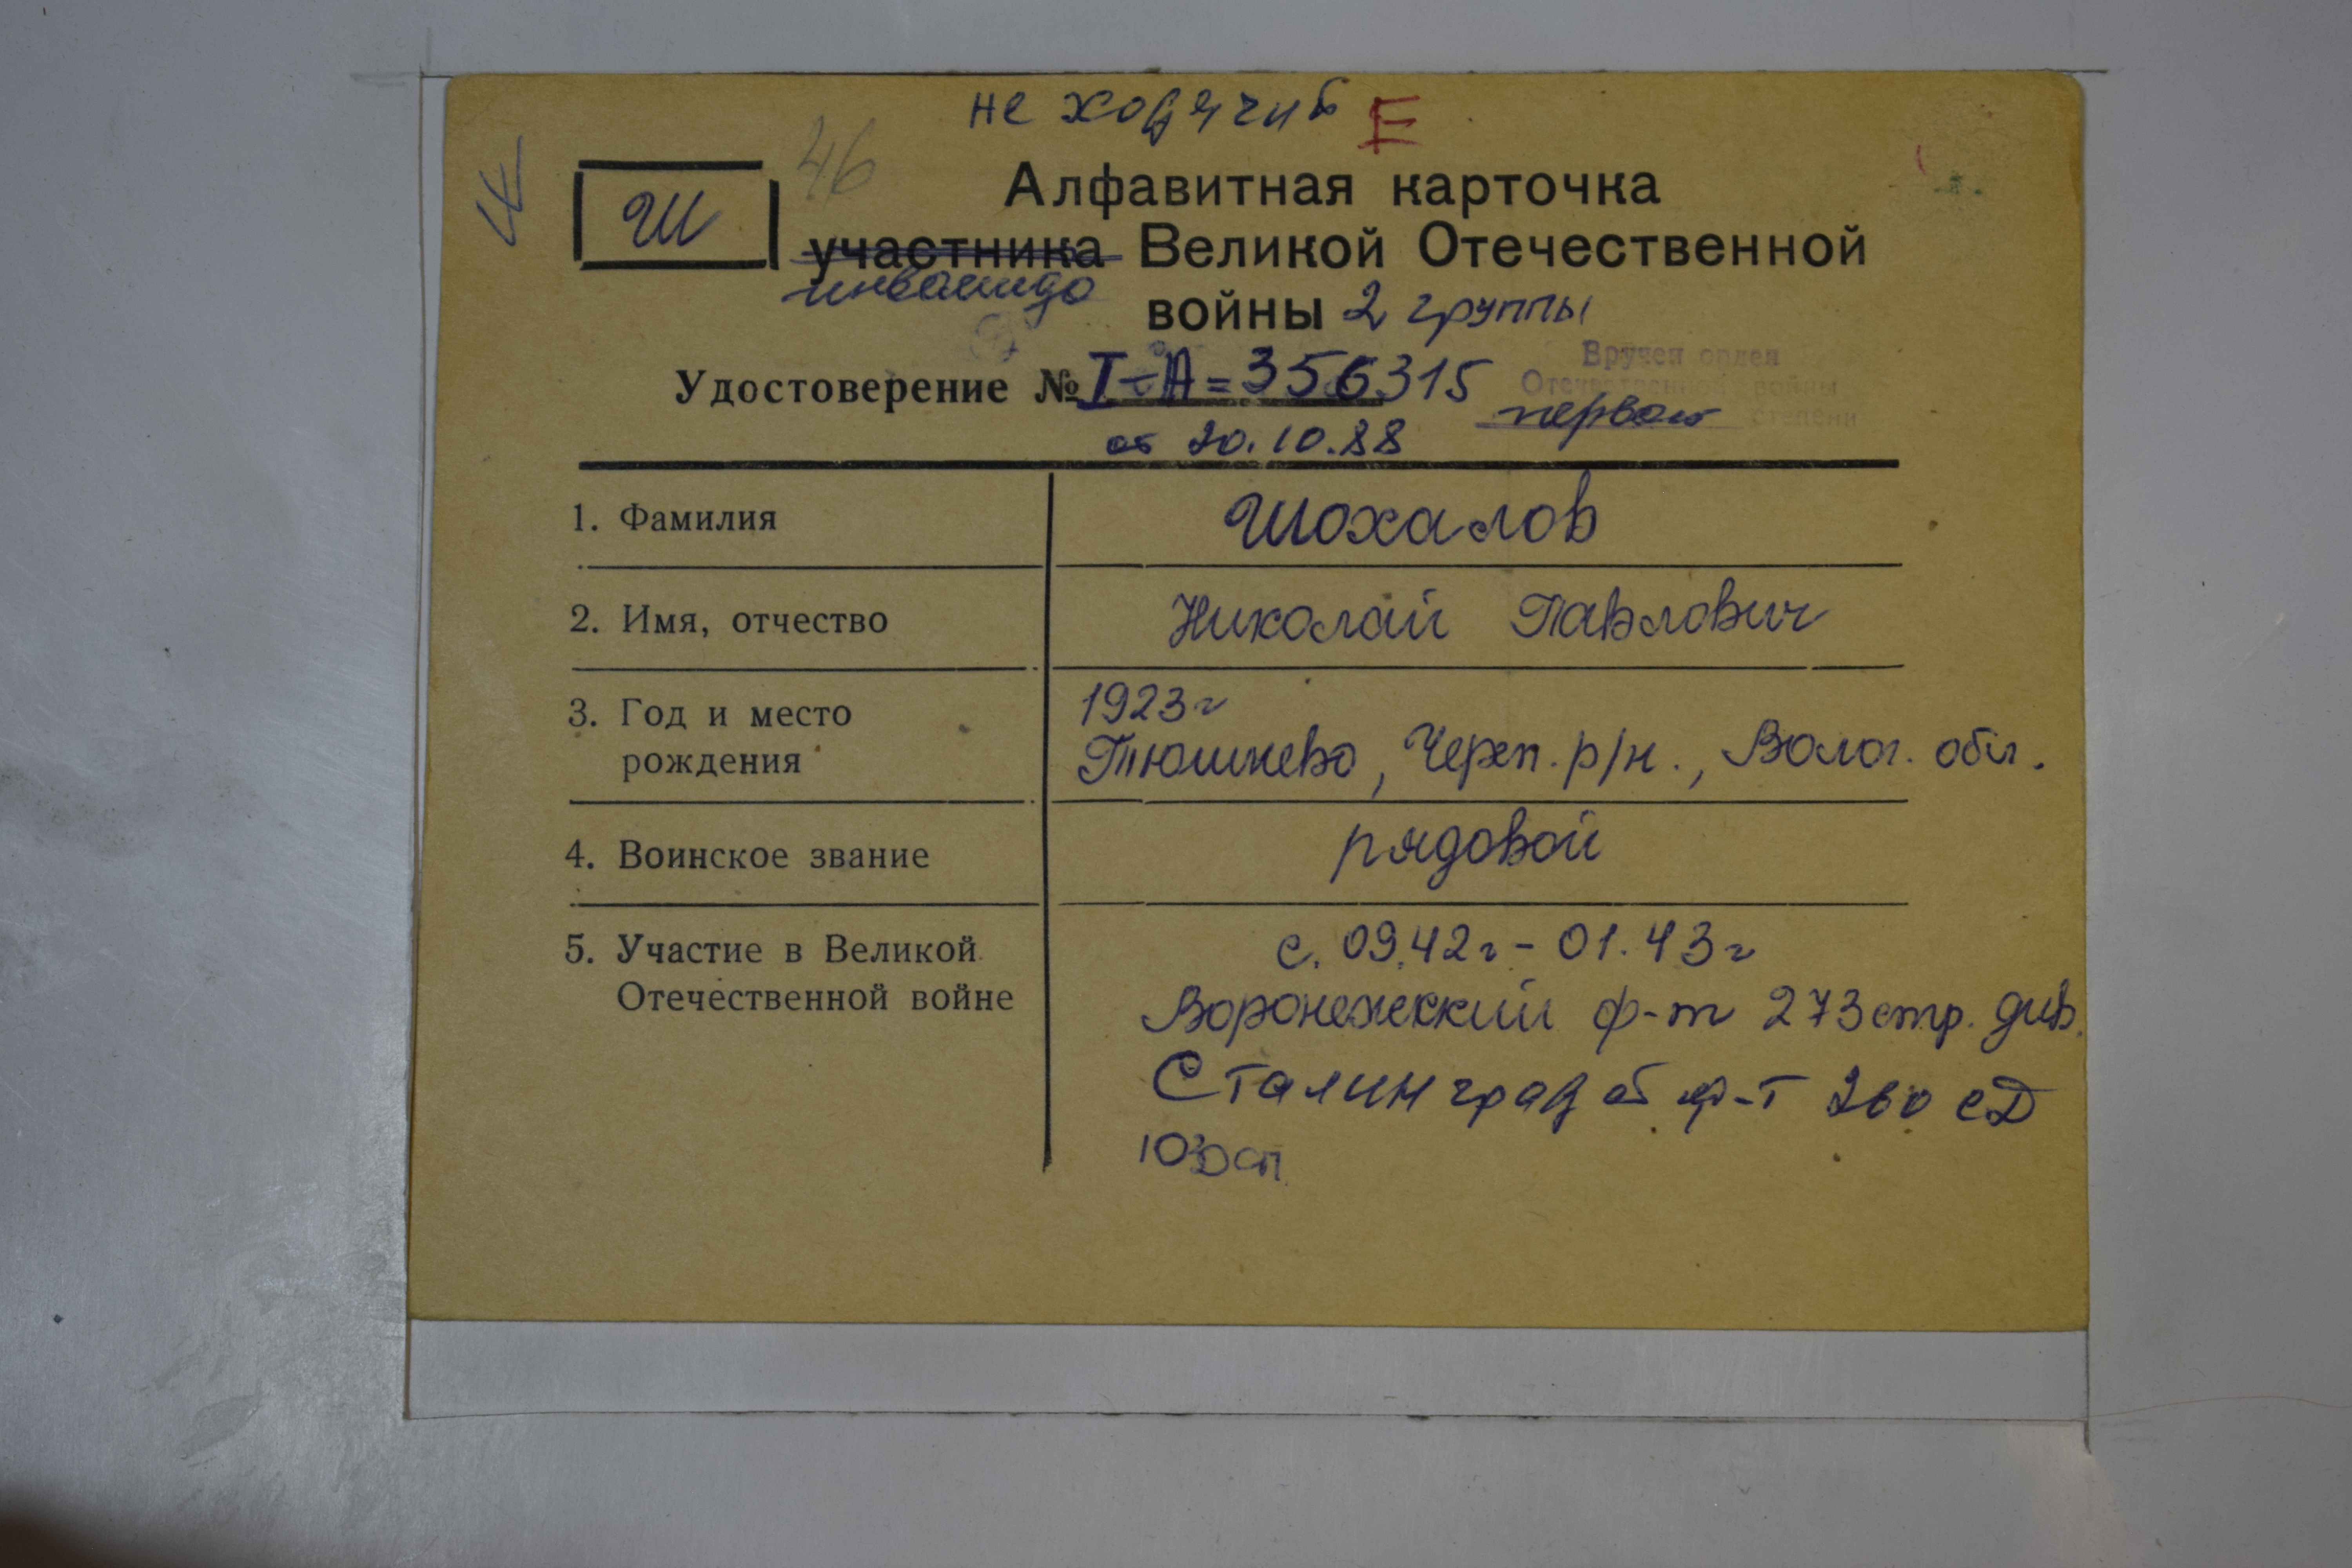 не ходячий Е
46
Ш
Алфавитная карточка
участника Великой Отечественной
инвалида
войны 2 группы
Удостоверение № I-А=356315
от 20.10.88
Вручен орден
Отечественной войны
первой степени
1. Фамилия
Шохалов
2. Имя, отчество
Николай Павлович
3. Год и место
рождения
1923г
Тюшнево, Череп. р/н., Волог. обл.
4. Воинское звание
рядовой
5. Участие в Великой
Отечественной войне
с. 09.42г - 01.43г
Воронежский ф-т 273 стр. див.
Сталинград ф-т 260 сД
1030 сп